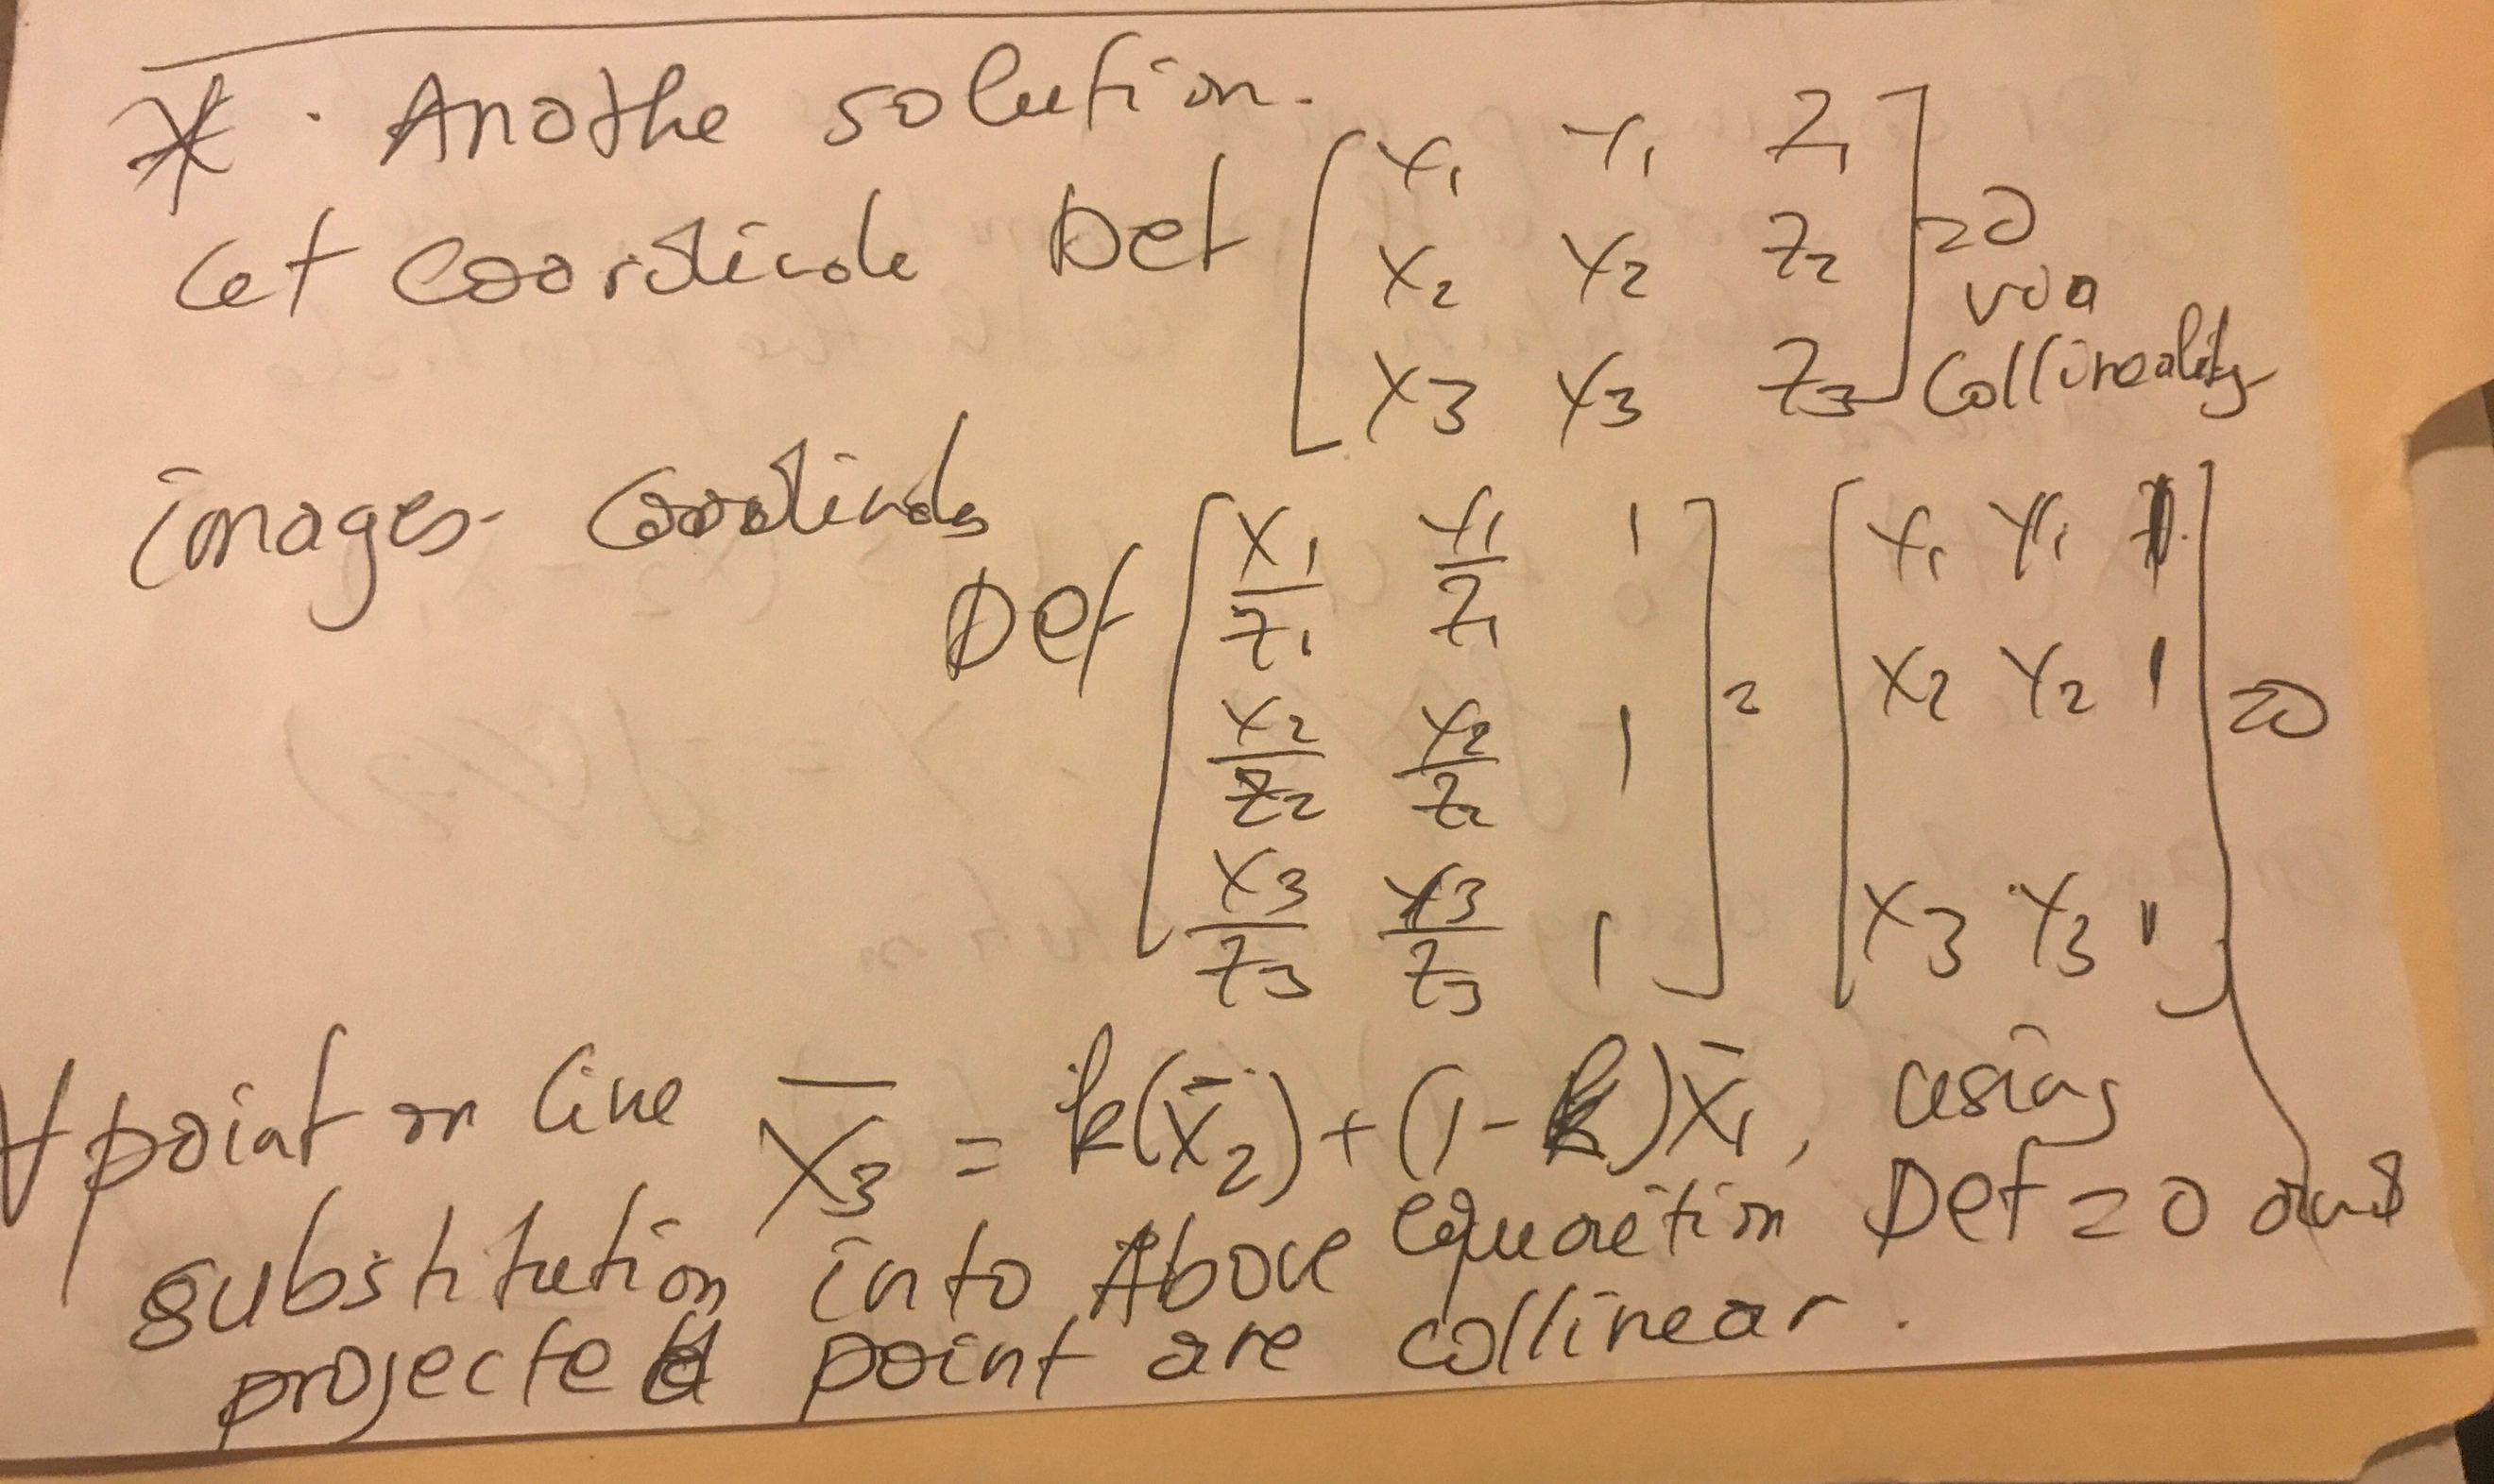 * · Anothe solution.
Let coordinate Det [ X1 Y1 Z1
X2 Y2 Z2
X3 Y3 Z3 ] = 0 via Collineality
images coordinates
Det [ X1/Z1 Y1/Z1 1
X2/Z2 Y2/Z2 1
X3/Z3 Y3/Z3 1 ] = [ X1 Y1 1
X2 Y2 1
X3 Y3 1 ] = 0
∀ point on line X̄3 = k(X̄2) + (1-k)X̄1, using
substitution into Above equation Det = 0 and
projected point are collinear.